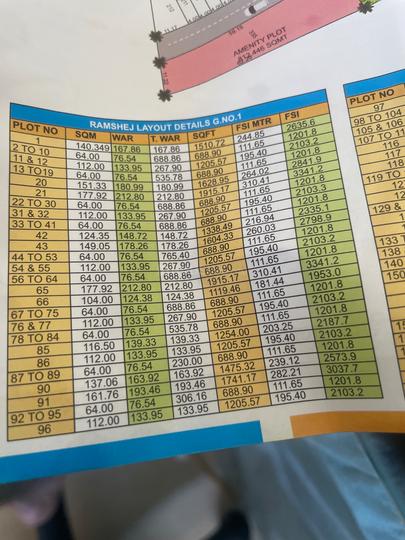 AMENITY PLOT
812.446 SQMT
RAMSHEJ LAYOUT DETAILS G.NO.1
PLOT NO SQM WAR T. WAR SQFT FSI MTR FSI
1 140.349 167.86 167.86 1510.72 244.85 2635.6
2 TO 10 64.00 76.54 688.86 688.90 111.65 1201.8
11 & 12 112.00 133.95 267.90 1205.57 195.40 2103.2
13 TO19 64.00 76.54 535.78 688.90 111.65 1201.8
20 151.33 180.99 180.99 1628.95 264.02 2841.9
21 177.92 212.80 212.80 1915.17 310.41 3341.2
22 TO 30 64.00 76.54 688.86 688.90 111.65 1201.8
31 & 32 112.00 133.95 267.90 1205.57 195.40 2103.3
33 TO 41 64.00 76.54 688.86 688.90 111.65 1201.8
42 124.35 148.72 148.72 1338.49 216.94 2335.1
43 149.05 178.26 178.26 1604.33 260.03 2798.9
44 TO 53 64.00 76.54 765.40 688.90 111.65 1201.8
54 & 55 112.00 133.95 267.90 1205.57 195.40 2103.2
56 TO 64 64.00 76.54 688.86 688.90 111.65 1201.8
65 177.92 212.80 212.80 1915.17 310.41 3341.2
66 104.00 124.38 124.38 1119.46 181.44 1953.0
67 TO 75 64.00 76.54 688.86 688.90 111.65 1201.8
76 & 77 112.00 133.95 267.90 1205.57 195.40 2103.2
78 TO 84 64.00 76.54 535.78 688.90 111.65 1201.8
85 116.50 139.33 139.33 1254.00 203.25 2187.7
86 112.00 133.95 133.95 1205.57 195.40 2103.2
87 TO 89 64.00 76.54 230.00 688.90 111.65 1201.8
90 137.06 163.92 163.92 1475.32 239.12 2573.9
91 161.76 193.46 193.46 1741.17 282.21 3037.7
92 TO 95 64.00 76.54 306.16 688.90 111.65 1201.8
96 112.00 133.95 133.95 1205.57 195.40 2103.2
PLOT NO
97
98 TO 104
105 & 106
107 TO 11
116
117
118
119 TO